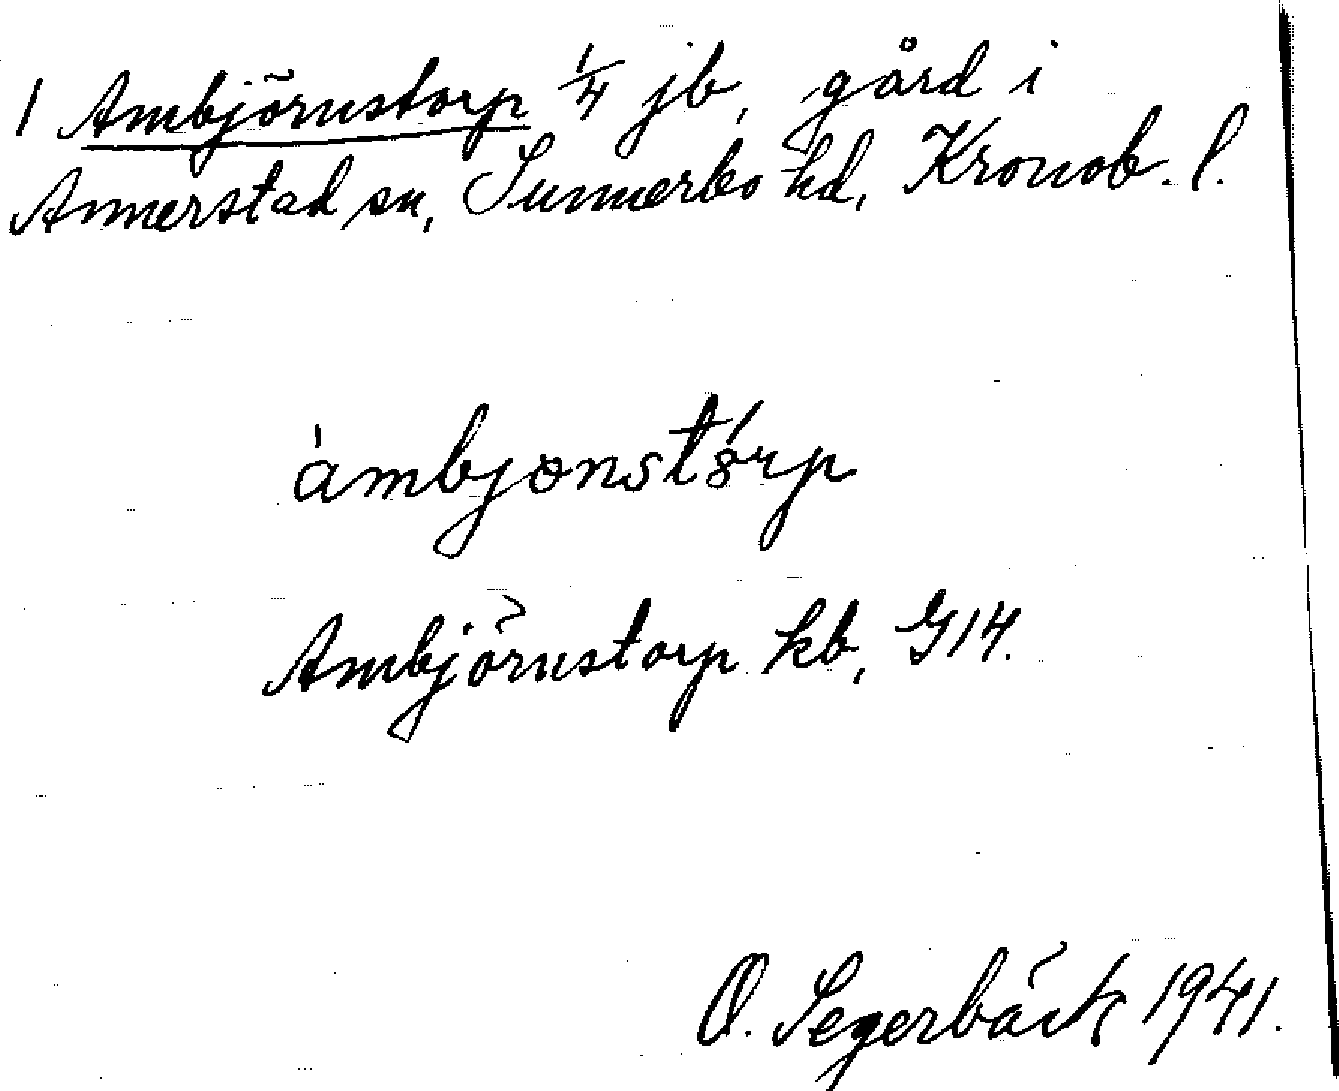 1 Ambjörnstorp 1/4 jb, gård i
Annerstad sn, Sunnerbo hd, Kronob. l.
àmbjonstórp
Ambjörnstorp kb, G14.
O. Segerbäck 1941.